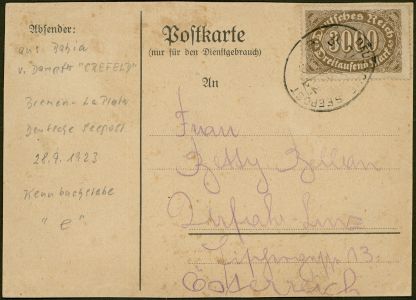 Absender:
aus Bahia
v. Dampfer "CREFELD"
Bremen - La Plata
Deutsche Seepost
28.7.1923
Kennbuchstabe
"e"
Postkarte
(nur für den Dienstgebrauch)
An
Frau
Betty
Urfahr-Linz
13.
Österreich
Deutsches Reich
3000
Dreitausend Mark
SEEPOST